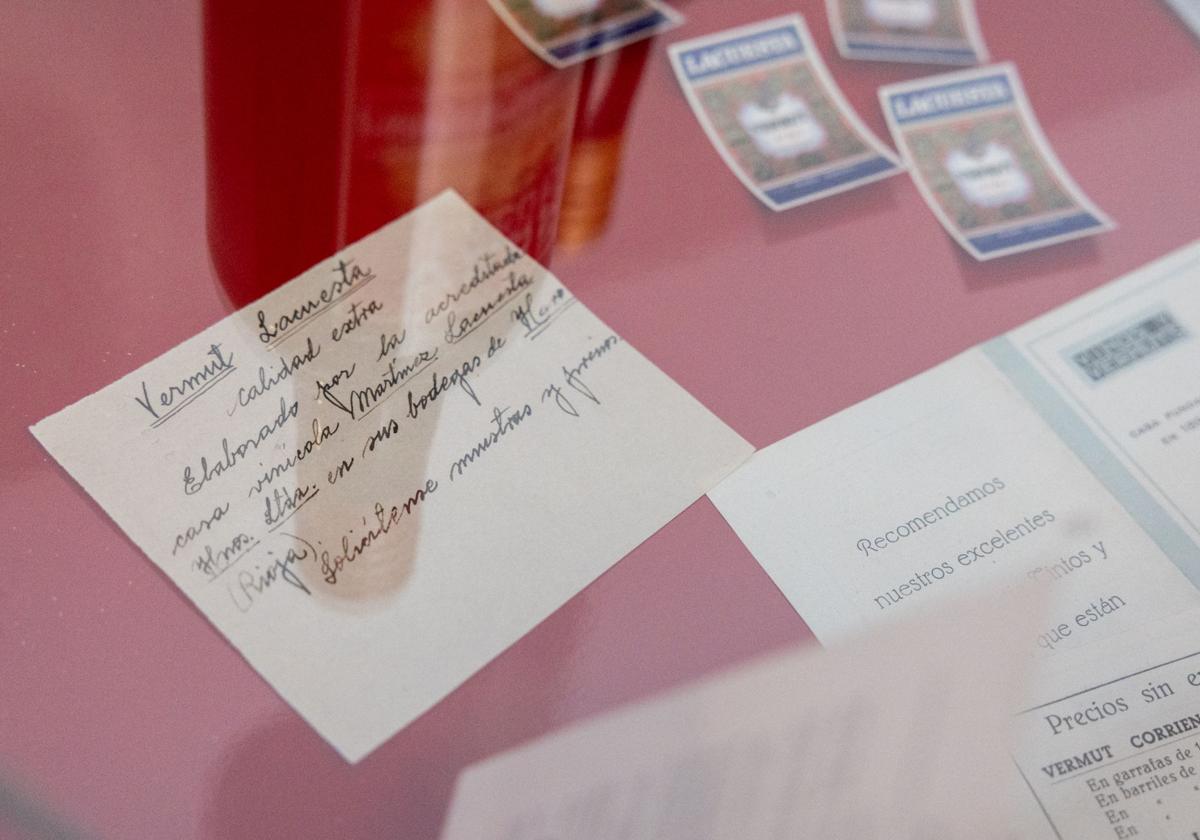 LACUESTA
LACUESTA
Vermut Lacuesta
calidad extra
Elaborado por la acreditada
casa vinícola Martínez Lacuesta
Hnos. Ltda. en sus bodegas de Haro
(Rioja).
Solicítense muestras y precios.
Recomendamos
nuestros excelentes
Tintos y
que están
Precios sin
VERMUT CORRIEN
En garrafas de
En barriles de
En "
En